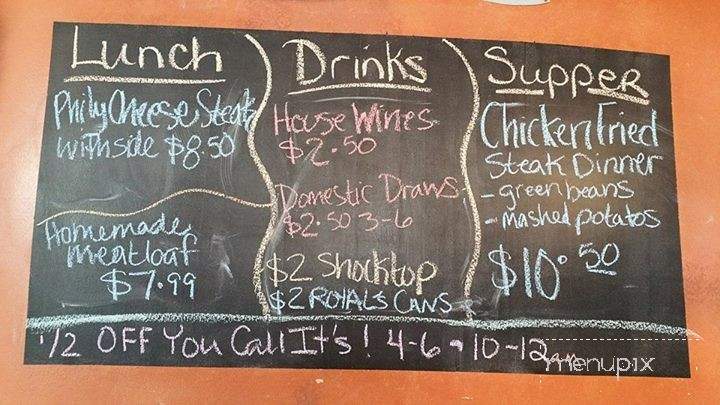 Lunch
Phily Cheese Steak
with side $8.50
Homemade
meatloaf
$7.99
Drinks
House Wines
$2.50
Domestic Draws
$2.50 3-6
$2 Shocktop
$2 ROYALS CANS
Supper
Chicken Fried
Steak Dinner
- green beans
- mashed potatos
$10.50
1/2 OFF You Call It's! 4-6 - 10-12am
menupix